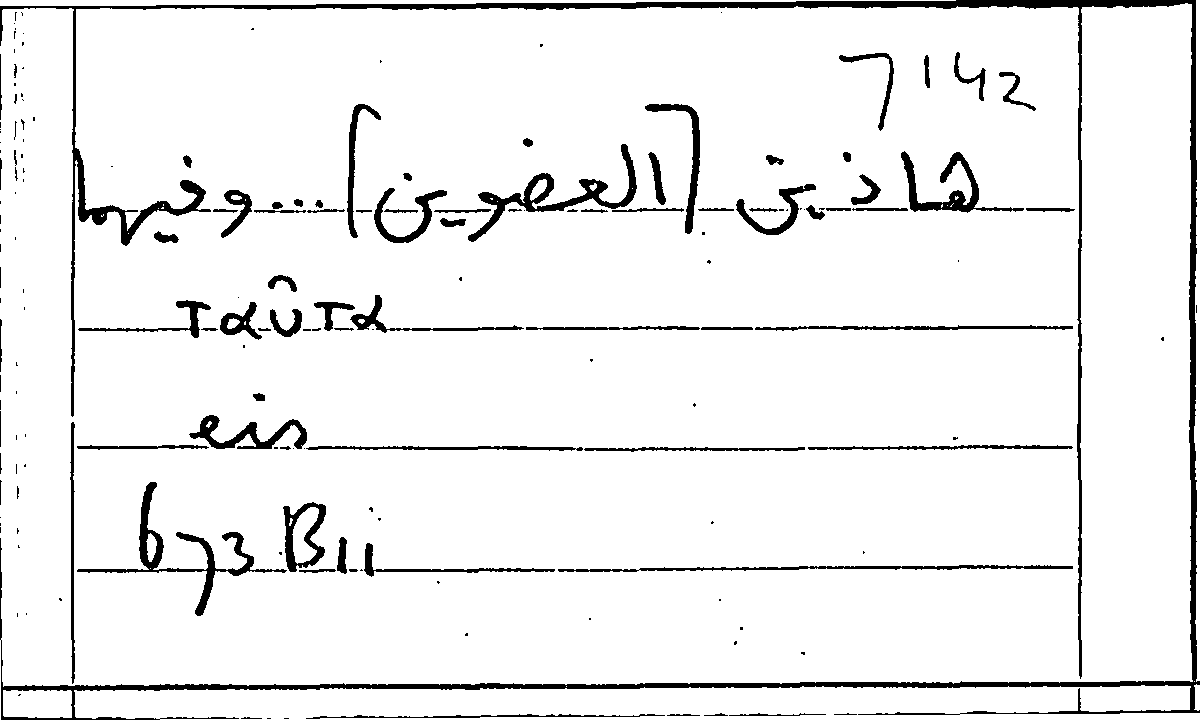 7142
هاذين [العضوين]...وفيهما
ταῦτα
eis
673 B11